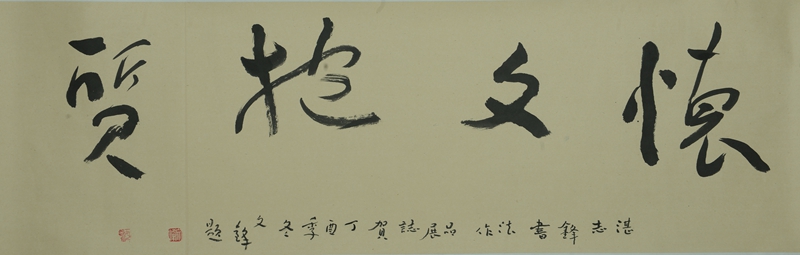 懷文抱質
湛志鋒書法作品展誌賀丁酉季冬文鋒題